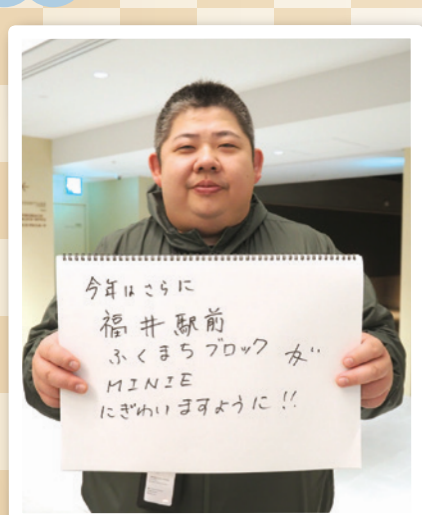 今年はさらに
福井駅前
ふくまちブロック が
MINIE
にぎわいますように!!